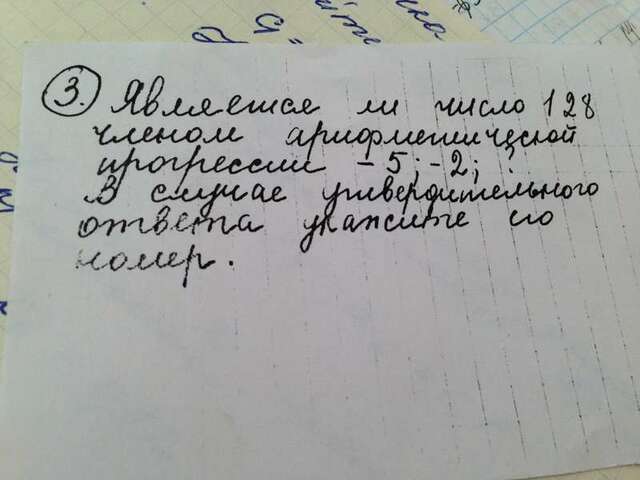 3. Является ли число 128
членом арифметической
прогрессии -5; -2; ?
В случае утвердительного
ответа укажите его
номер.